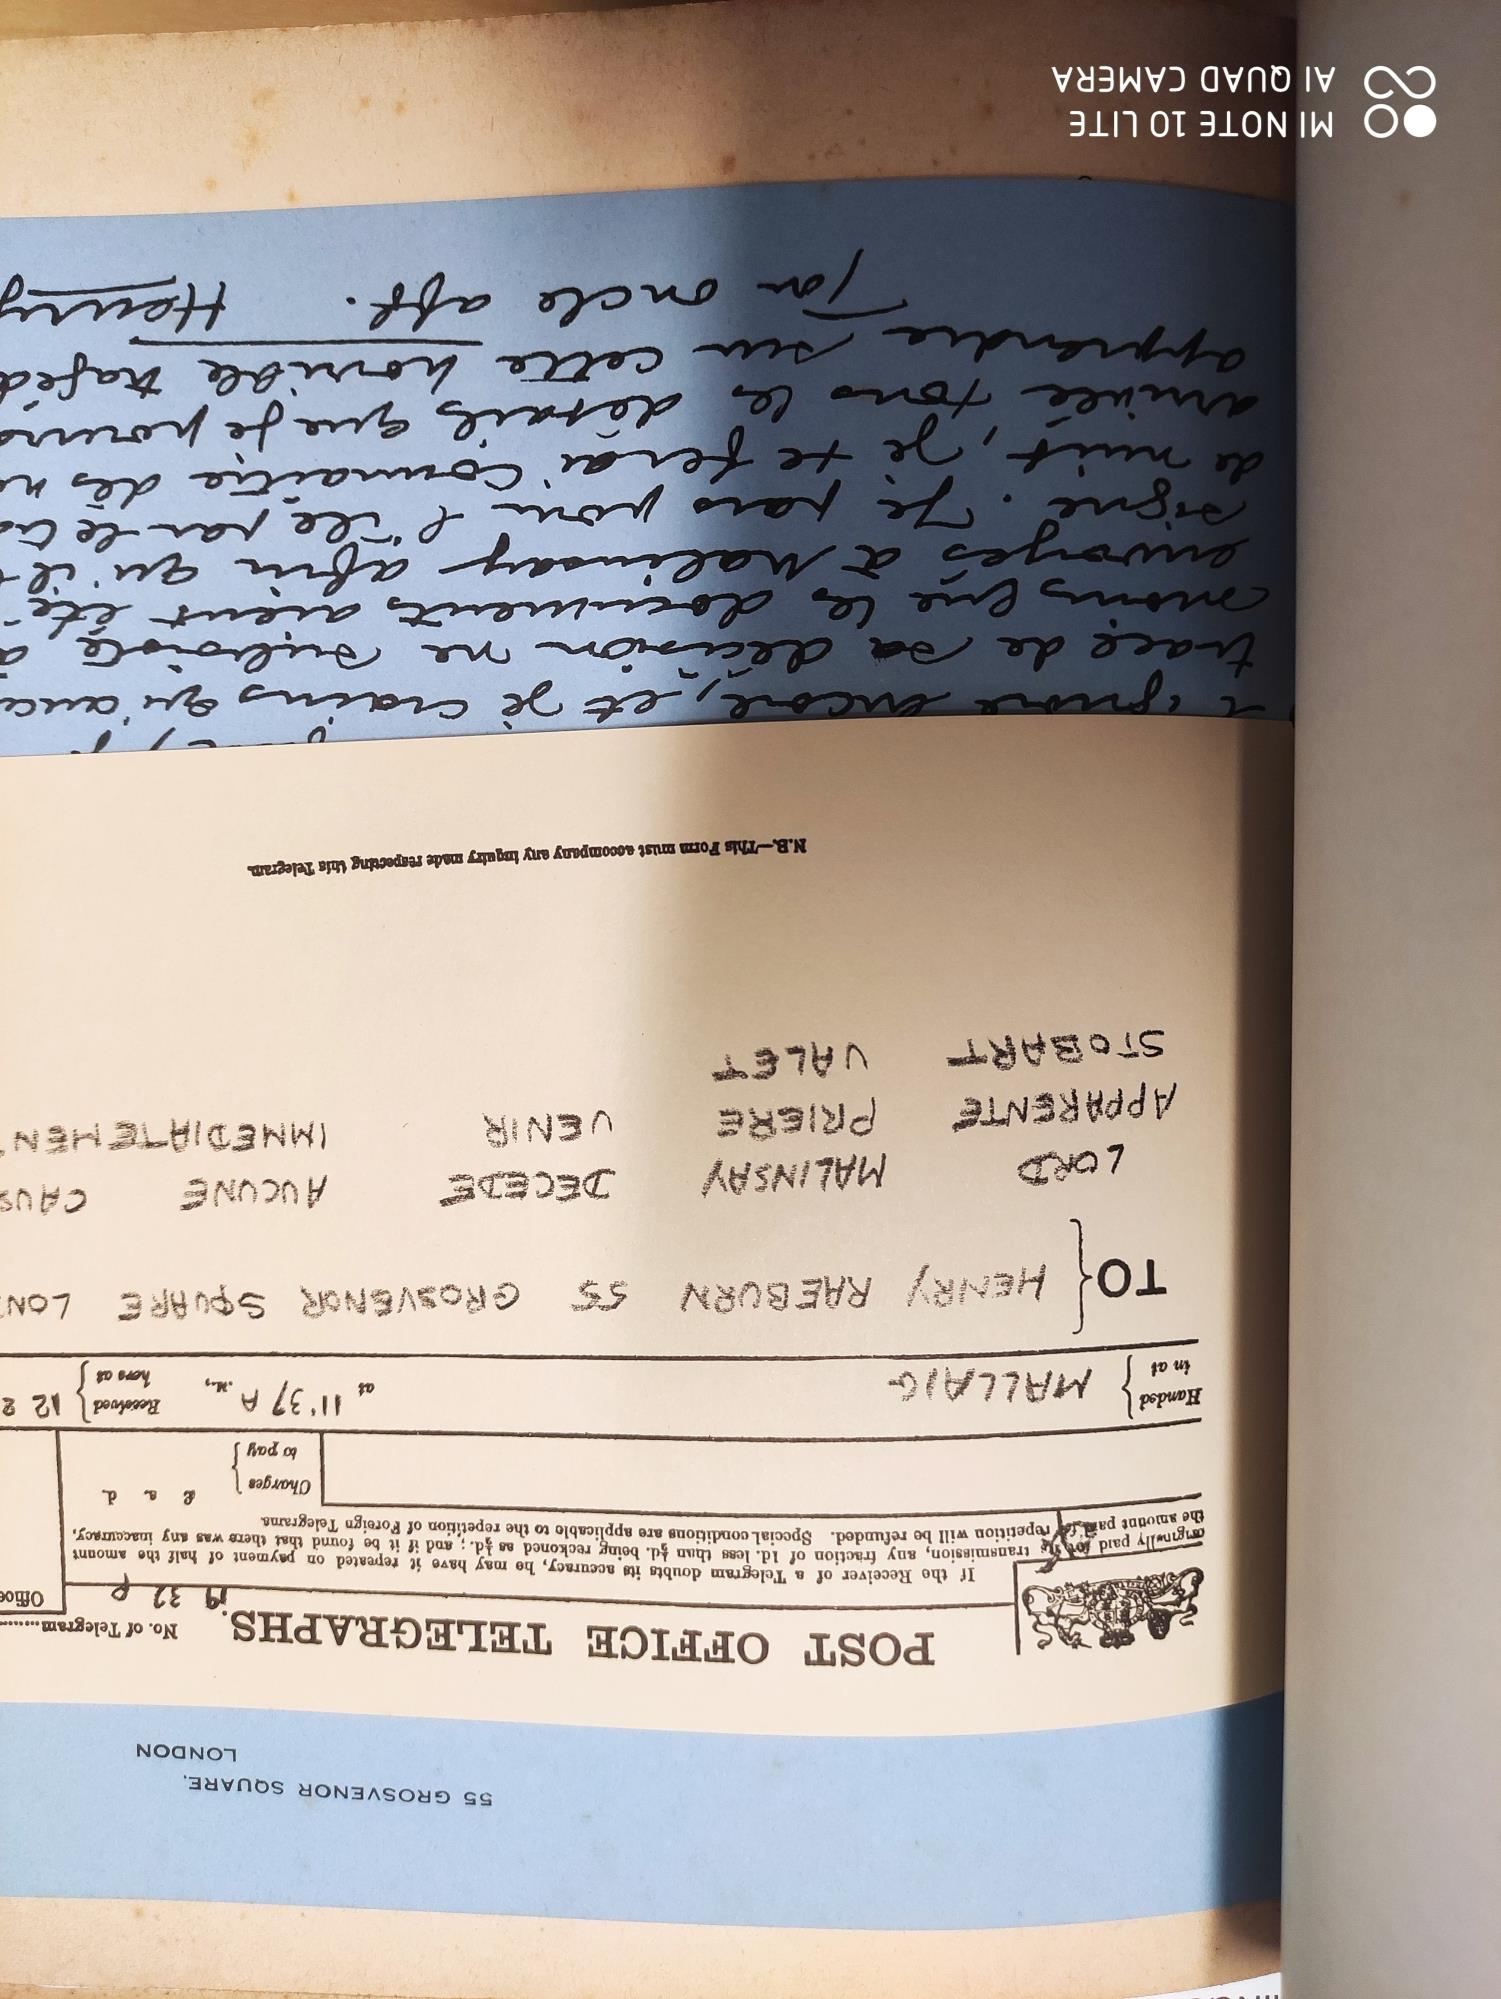 55 GROSVENOR SQUARE,
LONDON
POST OFFICE TELEGRAPHS.
No. of Telegram
Office
If the Receiver of a Telegram doubts its accuracy, he may have it repeated on payment of half the amount
originally paid for its transmission, any fraction of 1d. less than ½d. being reckoned as ½d.; and if it be found that there was any inaccuracy,
the amount paid for repetition will be refunded. Special conditions are applicable to the repetition of Foreign Telegrams.
Charges to pay
£ s. d.
Handed in at MALLAIG at 11'37 A .M., Received here at 12 2
TO HENRY RAEBURN 55 GROSVENOR SQUARE LON
LORD MALINSAY DECEDE AUCUNE CAUS
APPARENTE PRIERE VENIR IMMEDIATEMEN
STOBART VALET
N.B.—This Form must accompany any inquiry made respecting this Telegram.
ignore encore, et je crains qu'auc
trace de sa décision ne subsiste, à
moins que les documents aient été
envoyés à Malinsay afin qu'il
signe. Je pars pour l'île par le
de nuit, je te ferai connaître dès
arrivée tous les détails que je pourra
apprendre sur cette horrible tragéd
Ton oncle aff. Henry
MI NOTE 10 LITE
AI QUAD CAMERA